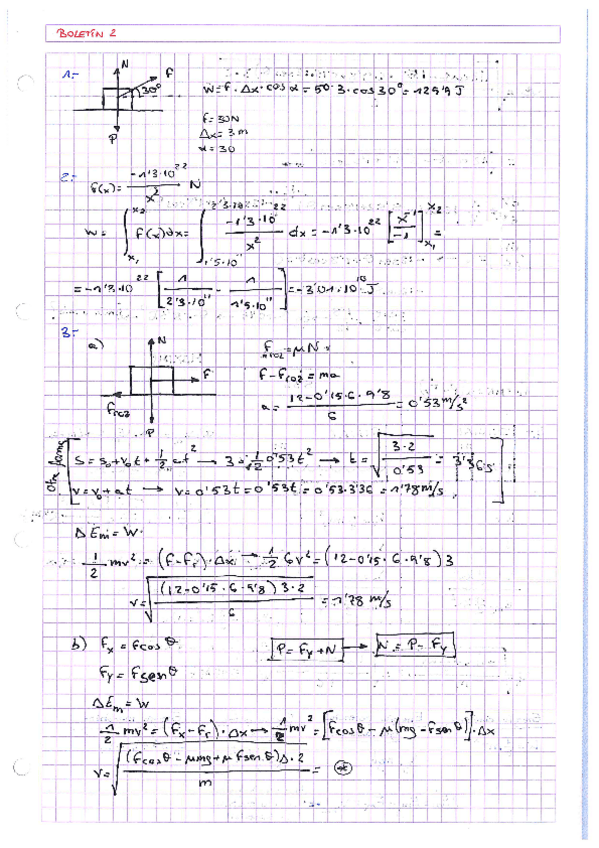 BOLETÍN 2
1.-
N
F
30°
P
W = F · Δx · cos α = 50 · 3 · cos 30° = 129'9 J
F = 30 N
Δx = 3 m
α = 30
2.-
F(x) = -1'3·10^22 / x² N
W = ∫_{x1}^{x2} F(x)dx = ∫_{1'5·10^11}^{2'3·10^11} -1'3·10^22 / x² dx = -1'3·10^22 [x^-1 / -1]_{x1}^{x2} =
= -1'3·10^22 [1 / 2'3·10^11 - 1 / 1'5·10^11] = -3'01·10^10 J
3.-
a)
N
F
Froz
P
Froz = μN
F - Froz = ma
a = 12-0'15·6·9'8 / 6 = 0'53 m/s²
Otra forma
S = S₀ + V₀t + 1/2 at² → 3 = 1/2 0'53t² → t = √(3·2 / 0'53) = 3'36 s
V = V₀ + at → V = 0'53t = 0'53t = 0'53·3'36 = 1'78 m/s
ΔEm = W
1/2 mv² = (F-Fr)·Δx → 1/2 6v² = (12-0'15·6·9'8) 3
V = √((12-0'15·6·9'8) 3·2 / 6) = 1'78 m/s
b) Fx = F cos θ
P = Fy + N → N = P - Fy
Fy = F sen θ
ΔEm = W
1/2 mv² = (Fx - Fr)·Δx → 1/2 mv² = [F cos θ - μ(mg - F sen θ)]·Δx
V = √((F cos θ - μmg + μ F sen θ)Δ·2 / m) = (*)